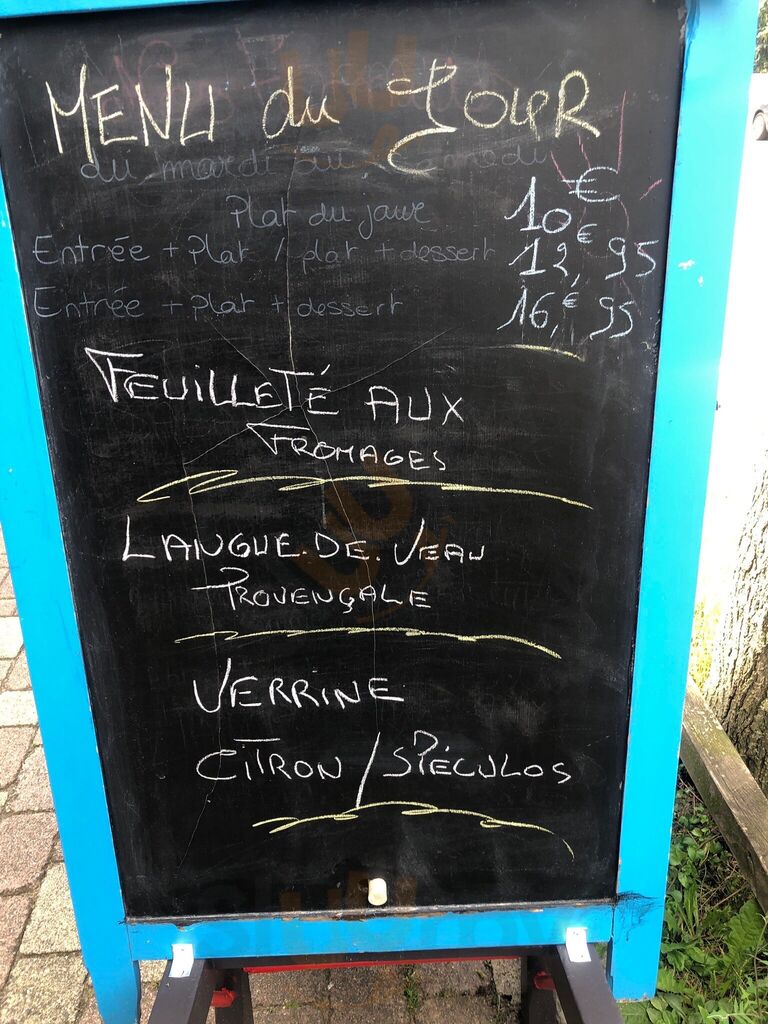 MENU du JOUR
du mardi au
Plat du jour 10€
Entrée + plat / plat + dessert 12,€95
Entrée + plat + dessert 16,€95
FEUILLETÉ AUX
FROMAGES
LANGUE.DE.VEAU
PROVENÇALE
VERRINE
CITRON / SPÉCULOS